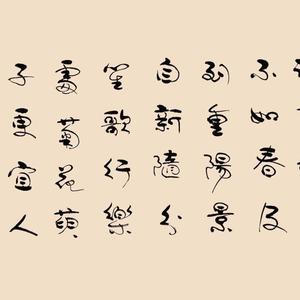 不如春及
到重陽景
自新隨分
笙歌行樂
處菊花萸
子更宜人